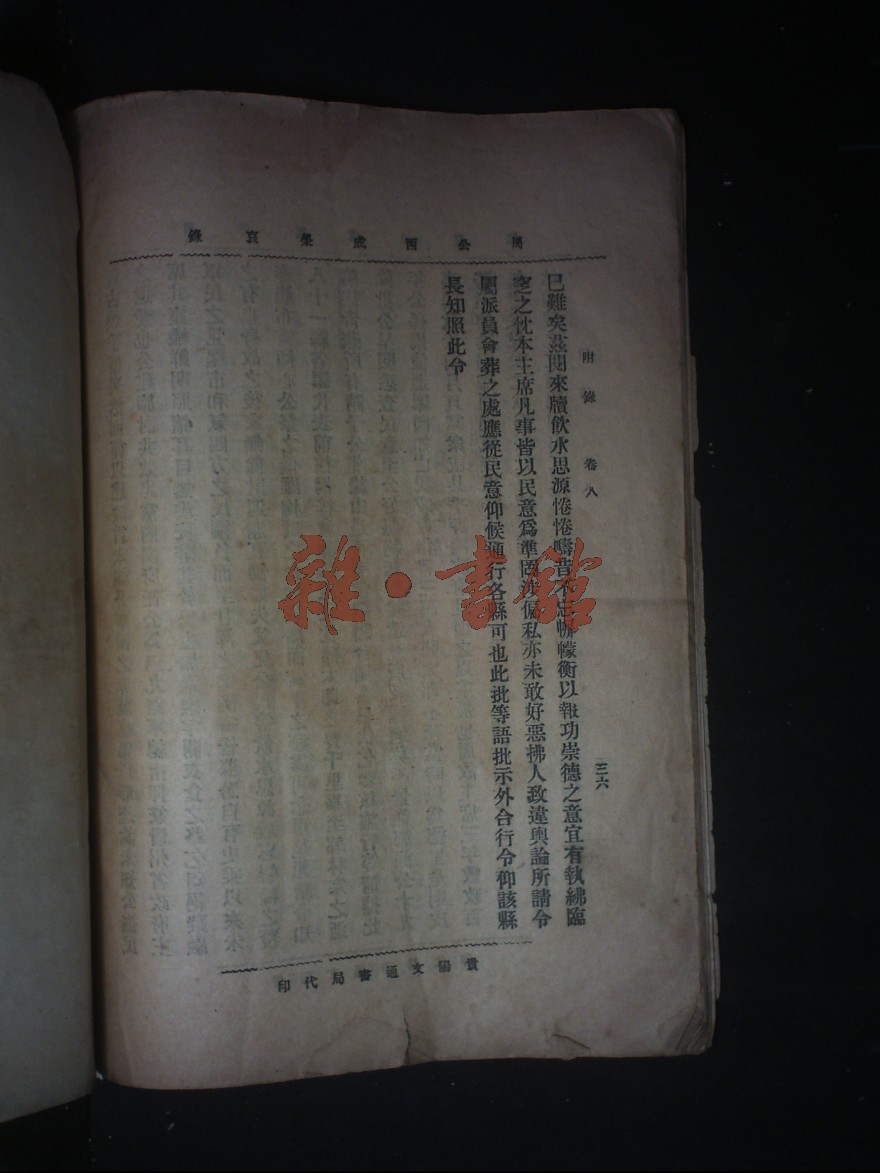 周公西成榮哀錄
附錄 卷八 三六
已難矣茲閱來牘飲水思源惓惓疇昔不忘帡幪衡以報功崇德之意宜有執紼臨
窆之忱本主席凡事皆以民意爲準固涉偏私亦未敢好惡拂人政違輿論所請令
屬派員會葬之處應從民意仰候通行各縣可也此批等語批示外合行令仰該縣
長知照此令
貴陽文通書局代印
雜·書館